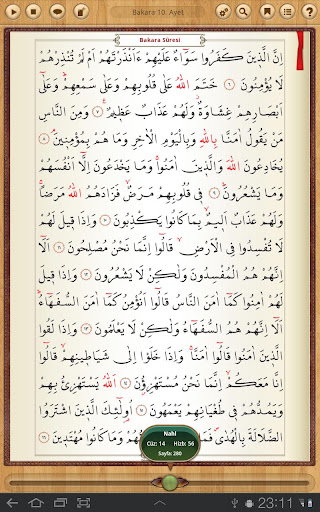 Bakara 10. Ayet
Bakara Sûresi
اِنَّ الَّذ۪ينَ كَفَرُوا سَوَٓاءٌ عَلَيْهِمْ ءَاَنْذَرْتَهُمْ اَمْ لَمْ تُنْذِرْهُمْ
لَا يُؤْمِنُونَ ﴿٦﴾ خَتَمَ اللّٰهُ عَلٰى قُلُوبِهِمْ وَعَلٰى سَمْعِهِمْ وَعَلٰٓى
اَبْصَارِهِمْ غِشَاوَةٌ وَلَهُمْ عَذَابٌ عَظ۪يمٌ ﴿٧﴾ وَمِنَ النَّاسِ
مَنْ يَقُولُ اٰمَنَّا بِاللّٰهِ وَبِالْيَوْمِ الْاٰخِرِ وَمَا هُمْ بِمُؤْمِن۪ينَ ﴿٨﴾
يُخَادِعُونَ اللّٰهَ وَالَّذ۪ينَ اٰمَنُوا وَمَا يَخْدَعُونَ اِلَّٓا اَنْفُسَهُمْ
وَمَا يَشْعُرُونَ ﴿٩﴾ ف۪ي قُلُوبِهِمْ مَرَضٌ فَزَادَهُمُ اللّٰهُ مَرَضًا
وَلَهُمْ عَذَابٌ اَل۪يمٌ بِمَا كَانُوا يَكْذِبُونَ ﴿١٠﴾ وَاِذَا ق۪يلَ لَهُمْ
لَا تُفْسِدُوا فِي الْاَرْضِ قَالُٓوا اِنَّمَا نَحْنُ مُصْلِحُونَ ﴿١١﴾ اَلَٓا
اِنَّهُمْ هُمُ الْمُفْسِدُونَ وَلٰكِنْ لَا يَشْعُرُونَ ﴿١٢﴾ وَاِذَا ق۪يلَ
لَهُمْ اٰمِنُوا كَمَٓا اٰمَنَ النَّاسُ قَالُٓوا اَنُؤْمِنُ كَمَٓا اٰمَنَ السُّفَهَٓاءُ
اَلَٓا اِنَّهُمْ هُمُ السُّفَهَٓاءُ وَلٰكِنْ لَا يَعْلَمُونَ ﴿١٣﴾ وَاِذَا لَقُوا
الَّذ۪ينَ اٰمَنُوا قَالُٓوا اٰمَنَّا وَاِذَا خَلَوْا اِلٰى شَيَاط۪ينِهِمْ قَالُٓوا
اِنَّا مَعَكُمْ اِنَّمَا نَحْنُ مُسْتَهْزِؤُ۫نَ ﴿١٤﴾ اَللّٰهُ يَسْتَهْزِئُ بِهِمْ
وَيَمُدُّهُمْ ف۪ي طُغْيَانِهِمْ يَعْمَهُونَ ﴿١٥﴾ اُو۬لٰٓئِكَ الَّذ۪ينَ اشْتَرَوُا
الضَّلَالَةَ بِالْهُدٰى وَمَا كَانُوا مُهْتَد۪ينَ ﴿١٦﴾
Nahl
Cüz: 14 Hizb: 56
Sayfa: 280
23:11